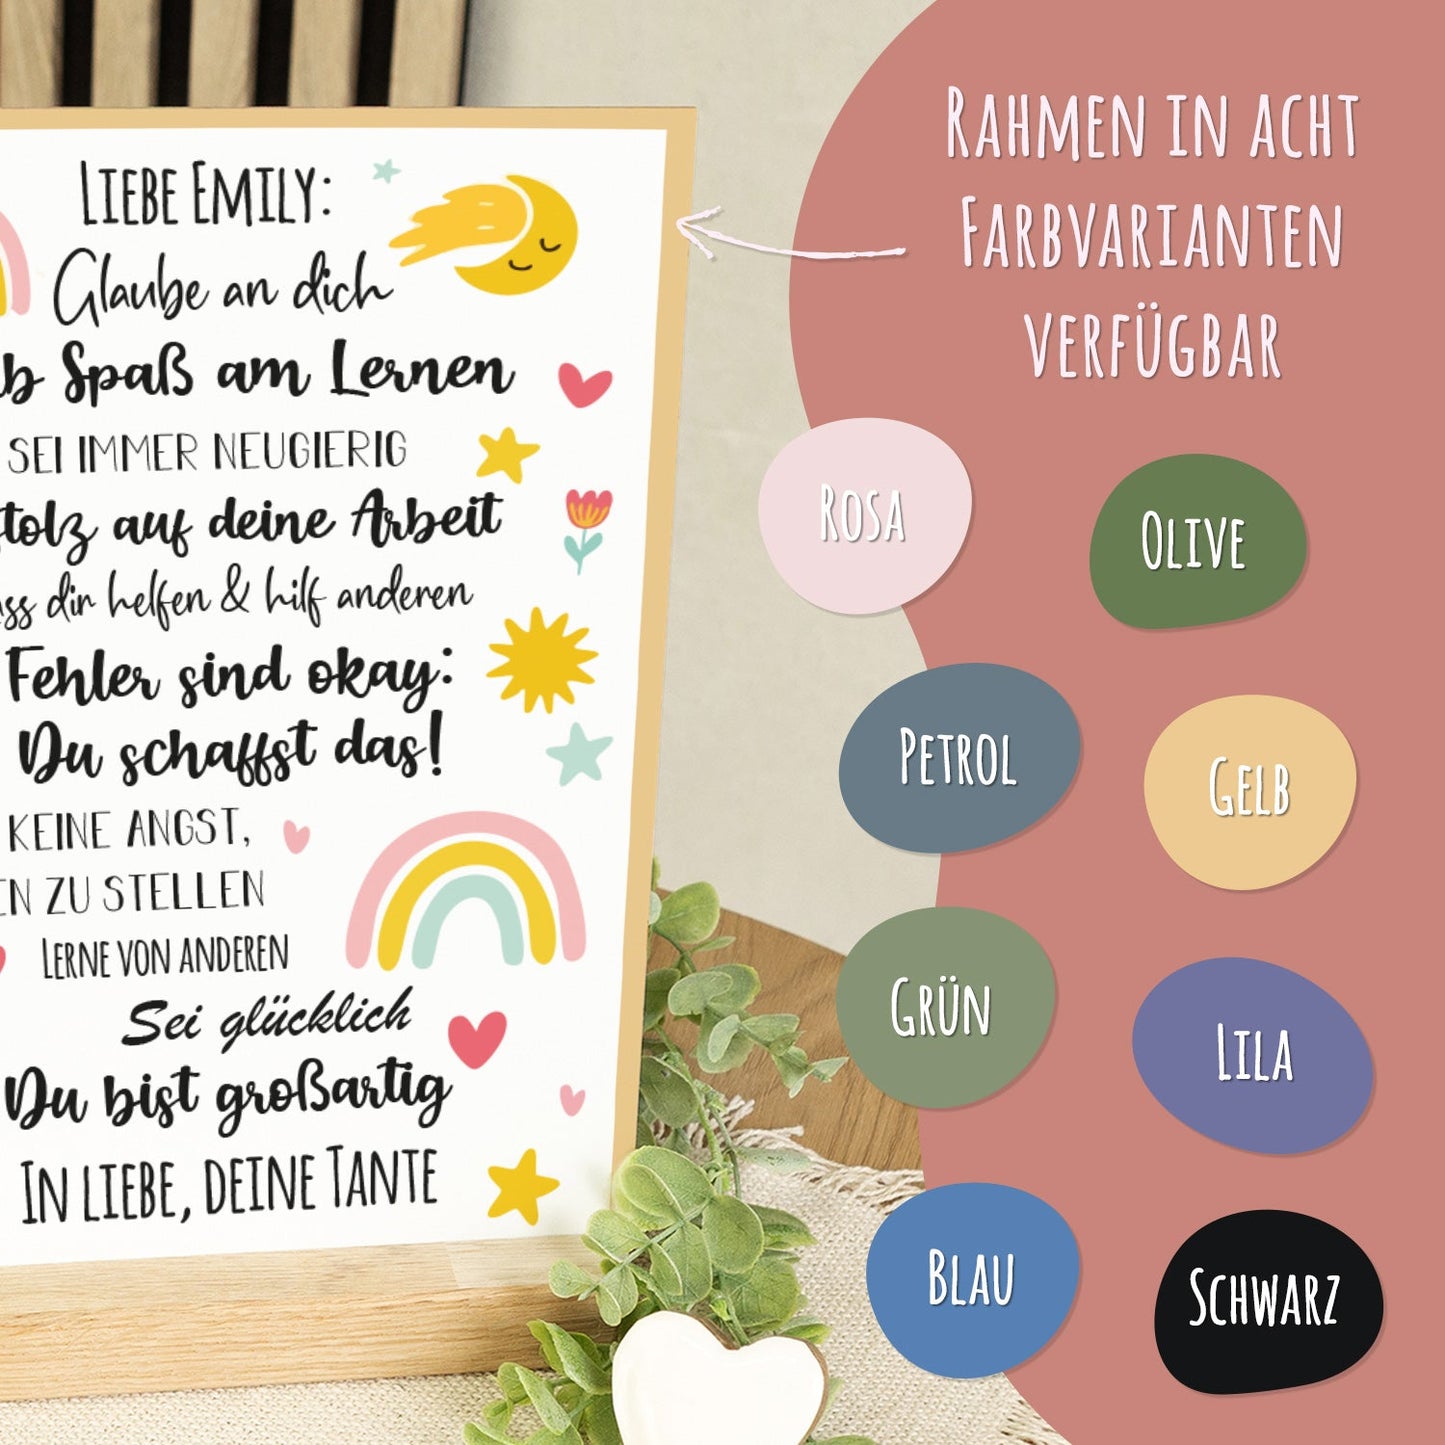 Liebe Emily:
Glaube an dich
Spaß am Lernen
SEI IMMER NEUGIERIG
auf deine Arbeit
dir helfen & hilf anderen
Fehler sind okay:
Du schaffst das!
KEINE ANGST,
ZU STELLEN
Lerne von anderen
Sei glücklich
Du bist großartig
In Liebe, deine Tante
Rahmen in acht
Farbvarianten
verfügbar
Rosa
Olive
Petrol
Gelb
Grün
Lila
Blau
Schwarz